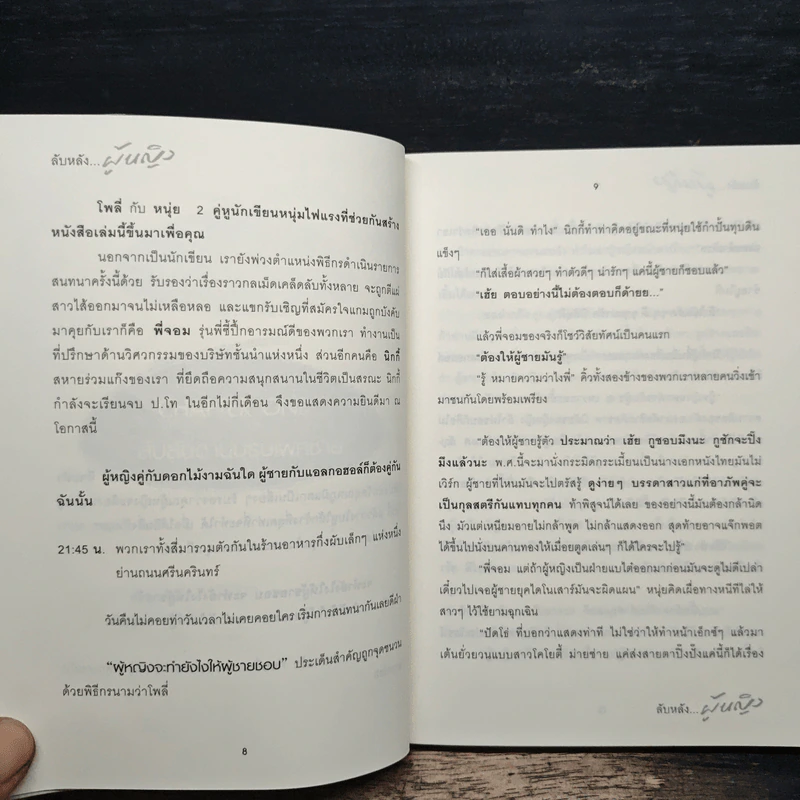 ลับหลัง...ผู้หญิง
โพลี่ กับ หนุ่ย 2 คู่หูนักเขียนหนุ่มไฟแรงที่ช่วยกันสร้าง
หนังสือเล่มนี้ขึ้นมาเพื่อคุณ
นอกจากเป็นนักเขียน เรายังพ่วงตำแหน่งพิธีกรดำเนินรายการ
สนทนาครั้งนี้ด้วย รับรองว่าเรื่องราวกลเม็ดเคล็ดลับทั้งหลาย จะถูกตีแผ่
สาวไส้ออกมาจนไม่เหลือหลอ และแขกรับเชิญที่สมัครใจแกมถูกบังคับ
มาคุยกับเราก็คือ พี่จอม รุ่นพี่ซี้ปึ้กอารมณ์ดีของพวกเรา ทำงานเป็น
ที่ปรึกษาด้านวิศวกรรมของบริษัทชั้นนำแห่งหนึ่ง ส่วนอีกคนคือ นิกกี้
สหายร่วมแก๊งของเรา ที่ยึดถือความสนุกสนานในชีวิตเป็นสรณะ นิกกี้
กำลังจะเรียนจบ ป.โท ในอีกไม่กี่เดือน จึงขอแสดงความยินดีมา ณ
โอกาสนี้
ผู้หญิงคู่กับดอกไม้งามฉันใด ผู้ชายกับแอลกอฮอล์ก็ต้องคู่กัน
ฉันนั้น
21:45 น. พวกเราทั้งสี่มารวมตัวกันในร้านอาหารกึ่งผับเล็กๆ แห่งหนึ่ง
ย่านถนนศรีนครินทร์
วันคืนไม่คอยท่าวันเวลาไม่เคยคอยใคร เริ่มการสนทนากันเลยดีฝ่า
"ผู้หญิงจะทำยังไงให้ผู้ชายชอบ" ประเด็นสำคัญถูกจุดชนวน
ด้วยพิธีกรนามว่าโพลี่
8
9
"เออ นั่นดิ ทำไง" นิกกี้ทำท่าคิดอยู่ขณะที่หนุ่ยใช้กำปั้นทุบดิน
แข็งๆ
"ก็ใส่เสื้อผ้าสวยๆ ทำตัวดีๆ น่ารักๆ แค่นี้ผู้ชายก็ชอบแล้ว"
"เฮ้ย ตอบอย่างนี้ไม่ต้องตอบก็ด้ายย..."
แล้วพี่จอมของจริงก็โชว์วิสัยทัศน์เป็นคนแรก
"ต้องให้ผู้ชายมันรู้"
"รู้ หมายความว่าไงพี่" คิ้วทั้งสองข้างของพวกเราหลายคนวิ่งเข้า
มาชนกันโดยพร้อมเพรียง
"ต้องให้ผู้ชายรู้ตัว ประมาณว่า เฮ้ย กูชอบมึงนะ กูชักจะปิ๊ง
มึงแล้วนะ พ.ศ.นี้จะมานั่งกระมิดกระเมี้ยนเป็นนางเอกหนังไทยมันไม่
เวิร์ก ผู้ชายที่ไหนมันจะไปตรัสรู้ ดูง่ายๆ บรรดาสาวแก่ที่อาภัพคู่จะ
เป็นกุลสตรีกันแทบทุกคน ท้าพิสูจน์ได้เลย ของอย่างนี้มันต้องกล้านิด
นึง มัวแต่เหนียมอายไม่กล้าพูด ไม่กล้าแสดงออก สุดท้ายอาจแจ็กพอต
ได้ขึ้นไปนั่งบนคานทองให้เมื่อยตูดเล่นๆ ก็ได้ใครจะไปรู้"
"พี่จอม แต่ถ้าผู้หญิงเป็นฝ่ายแบไต๋ออกมาก่อนมันจะดูไม่ดีเปล่า
เดี๋ยวไปเจอผู้ชายยุคไดโนเสาร์มันจะผิดแผน" หนุ่ยคิดเผื่อทางหนีทีไล่ให้
สาวๆ ไว้ใช้ยามฉุกเฉิน
"ปัดโธ่ ที่บอกว่าแสดงท่าที ไม่ใช่ว่าให้ทำหน้าเอ็กซ์ๆ แล้วมา
เต้นยั่วยวนแบบสาวโคโยตี้ ม่ายช่าย แค่ส่งสายตาปิ๊งปั๊งแค่นี้ก็ได้เรื่อง
ลับหลัง...ผู้หญิง